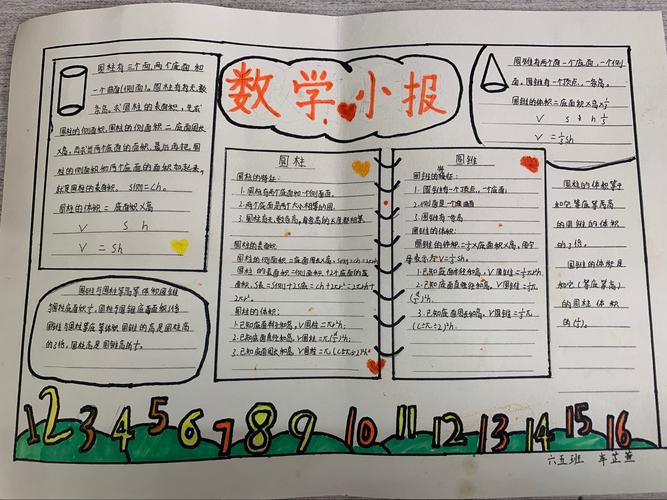 数学小报
圆柱有三个面,两个底面和
一个曲面(侧面)。圆柱有无数
条高。求圆柱的表面积,先求
圆柱的侧面积,圆柱的侧面积=底面周长
×高,再求出两个底面的面积,最后再把圆
柱的侧面积和两个底面的面积加起来,
就是圆柱的表面积。S侧=Ch。
圆柱的体积=底面积×高
V S h
V=Sh
圆锥有两个面一个底面,一个侧
面。圆锥有一个顶点,一条高。
圆锥的体积=底面积×高×1/3
V S h 1/3
V=1/3Sh
圆柱
圆柱的特征:
1.圆柱有两个底面和一个侧面。
2.两个底面是两个大小相等的圆。
3.圆柱有无数条高,每条高的长度都相等。
圆柱的表面积:
圆柱的侧面积=底面周长×高,S侧=Ch=2πrh
圆柱的体积:
1.已知底面半径和高,V圆柱=πr²h;
2.已知底面直径和高,V圆柱=π(d/2)²h;
3.已知底面周长和高,V圆柱=π(C÷π÷2)²h
圆锥
圆锥的特征:
1.圆锥有一个顶点,一个底面;
2.侧面是一个曲面
3.圆锥有一条高
圆锥的体积:
圆锥的体积=1/3×底面积×高,用字
母表示为V=1/3Sh。
1.已知底面半径和高,V圆锥=1/3πr²h;
2.已知底面直径和高,V圆锥=1/3π
(d/2)²h;
3.已知底面周长和高,V圆锥=1/3π
(C÷π÷2)²h。
圆柱的体积等于
和它等底等高
的圆锥的体积
的3倍。
圆锥的体积是
和它(等底等高)
的圆柱体积
的(1/3)。
圆锥与圆柱等高等体积圆锥
圆锥与圆柱等底等体积圆锥的高是圆柱高
的3倍,圆柱高是圆锥高的1/3
1 2 3 4 5 6 7 8 9 10 11 12 13 14 15 16
六五班